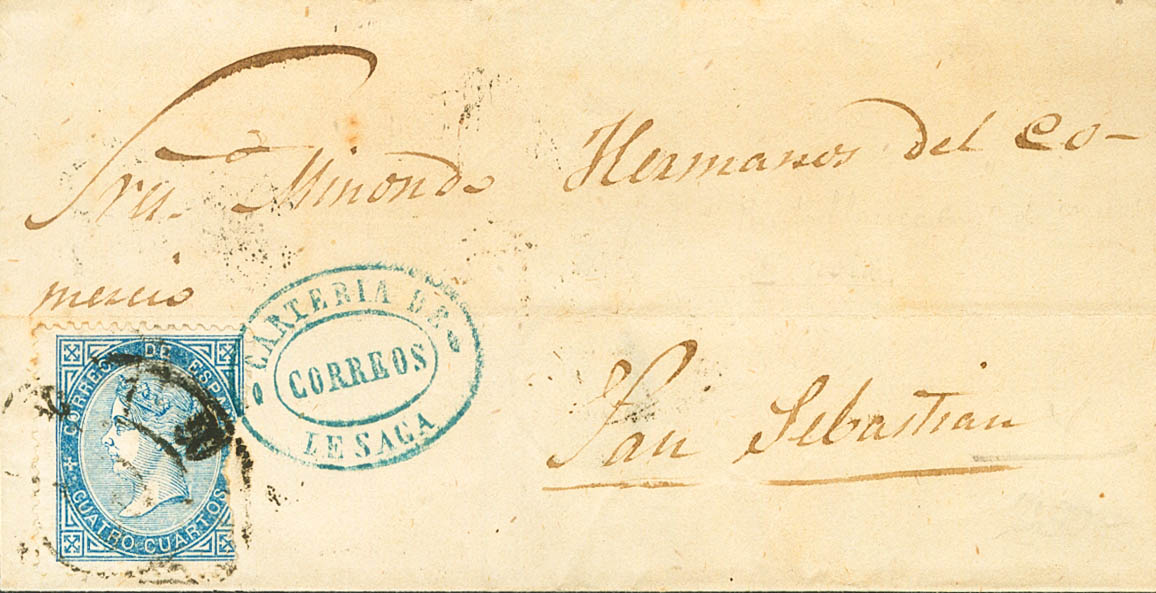 Sres. Minondo Hermanos del Co-
mercio
San Sebastian
CARTERIA DE
CORREOS
LESACA
CORREOS DE ESPAÑA
CUATRO CUARTOS